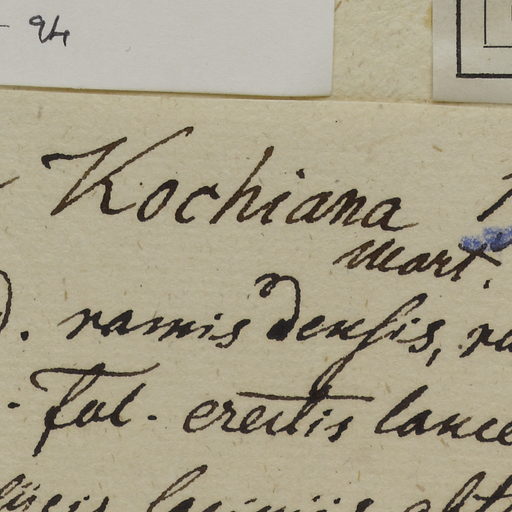 94
Kochiana
Mart.
ramis densis, ra
Fol. erectis lance
laciniis